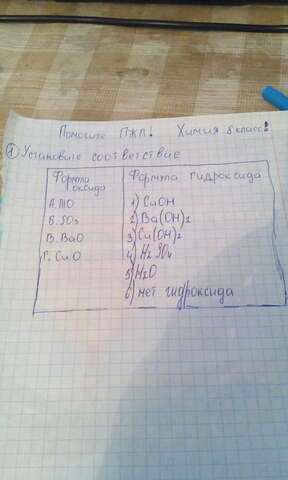 Помогите ПЖЛ! Химия 8 класс!
1 Установите соответствие
Формула оксида
Формула гидроксида
А. NO
Б. SO₃
В. BaO
Г. CuO
1) CuOH
2) Ba(OH)₂
3) Cu(OH)₂
4) H₂SO₄
5) H₂O
6) нет гидроксида